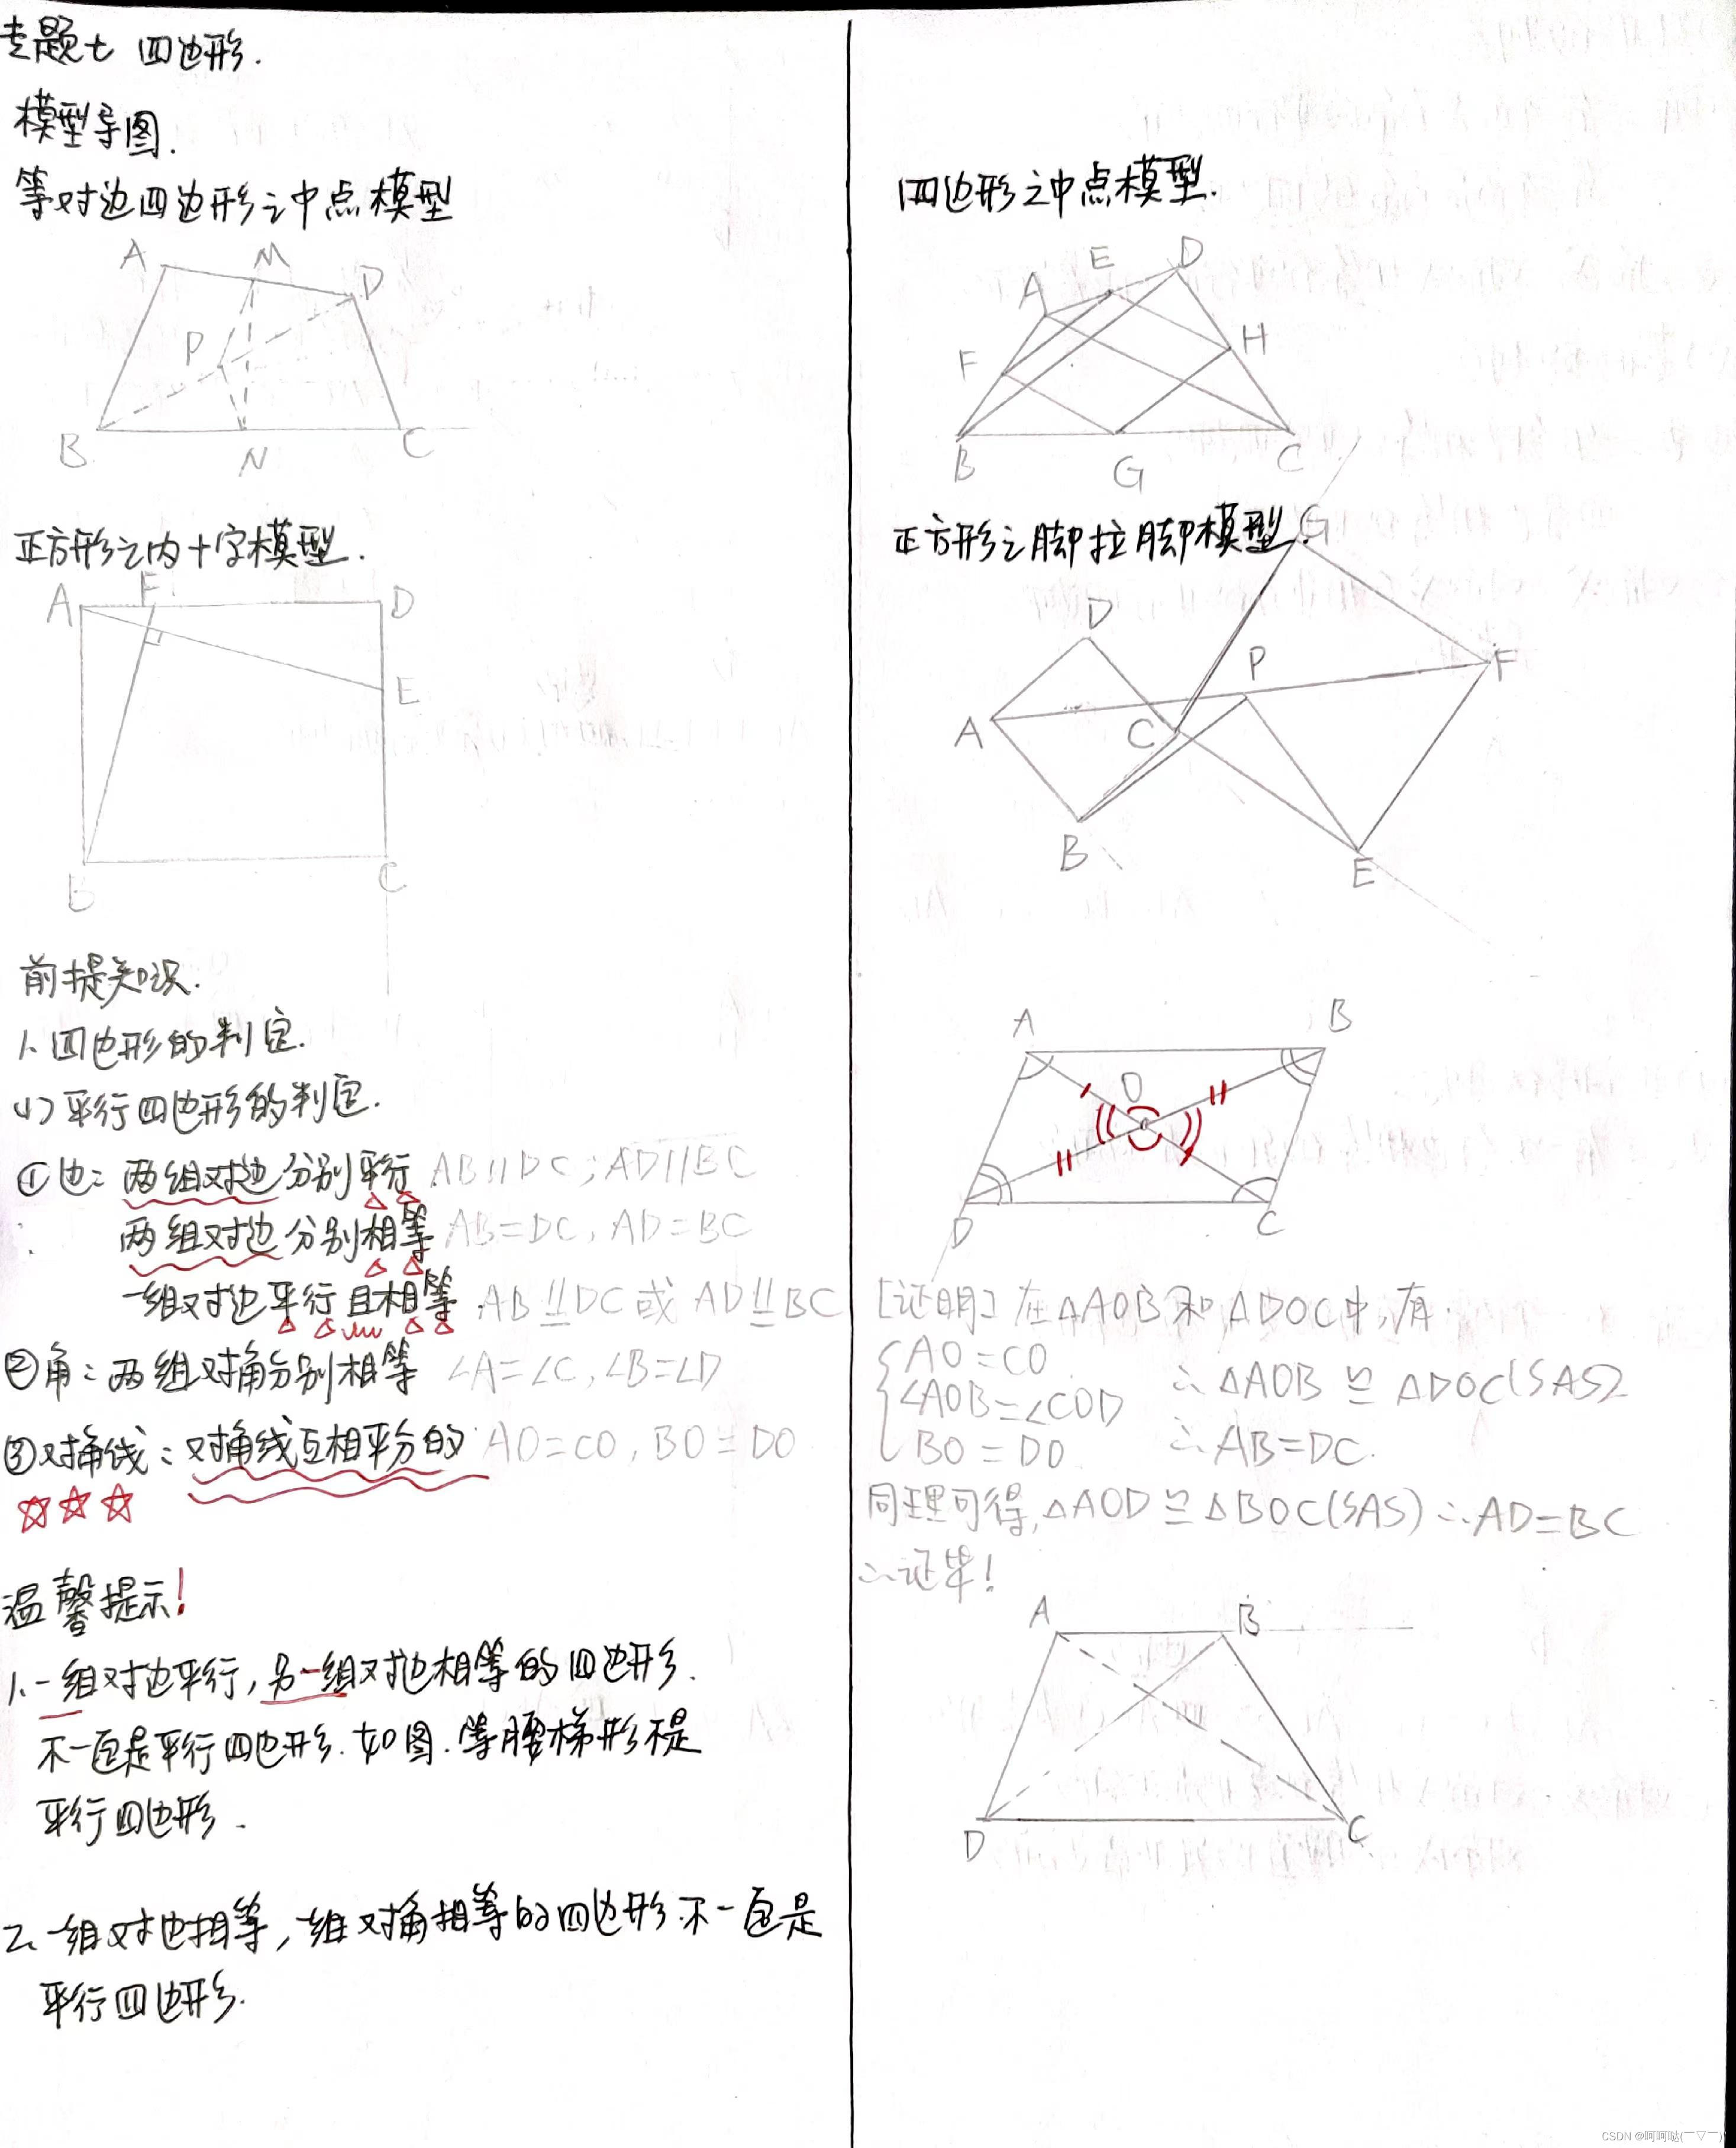 专题七 四边形.
模型导图.
等对边四边形之中点模型
A M D
P
B N C
正方形之内十字模型.
A F D
E
B C
前提知识.
1、四边形的判定.
(1)平行四边形的判定.
①边: 两组对边分别平行 AB//DC;AD//BC
两组对边分别相等 AB=DC, AD=BC
一组对边平行且相等. AB⫫DC 或 AD⫫BC
②角: 两组对角分别相等 ∠A=∠C,∠B=∠D
③对角线: 对角线互相平分的 AO=CO, BO=DO
温馨提示!
1、一组对边平行,另一组对边相等的四边形.
不一定是平行四边形.如图.等腰梯形不是
平行四边形.
2、一组对边相等,一组对角相等的四边形.不一定是
平行四边形.
四边形之中点模型.
A E D
F H
B G C
正方形之脚拉脚模型.
G
D
P F
A C
B E
A B
O
D C
[证明] 在△AOB和△DOC中,有
AO=CO
∠AOB=∠COD ∴△AOB≌△DOC(SAS)
BO=DO ∴AB=DC.
同理可得,△AOD≌△BOC(SAS)∴AD=BC
∴证毕!
A B
D C
CSDN @呵呵哒(￣▽￣)